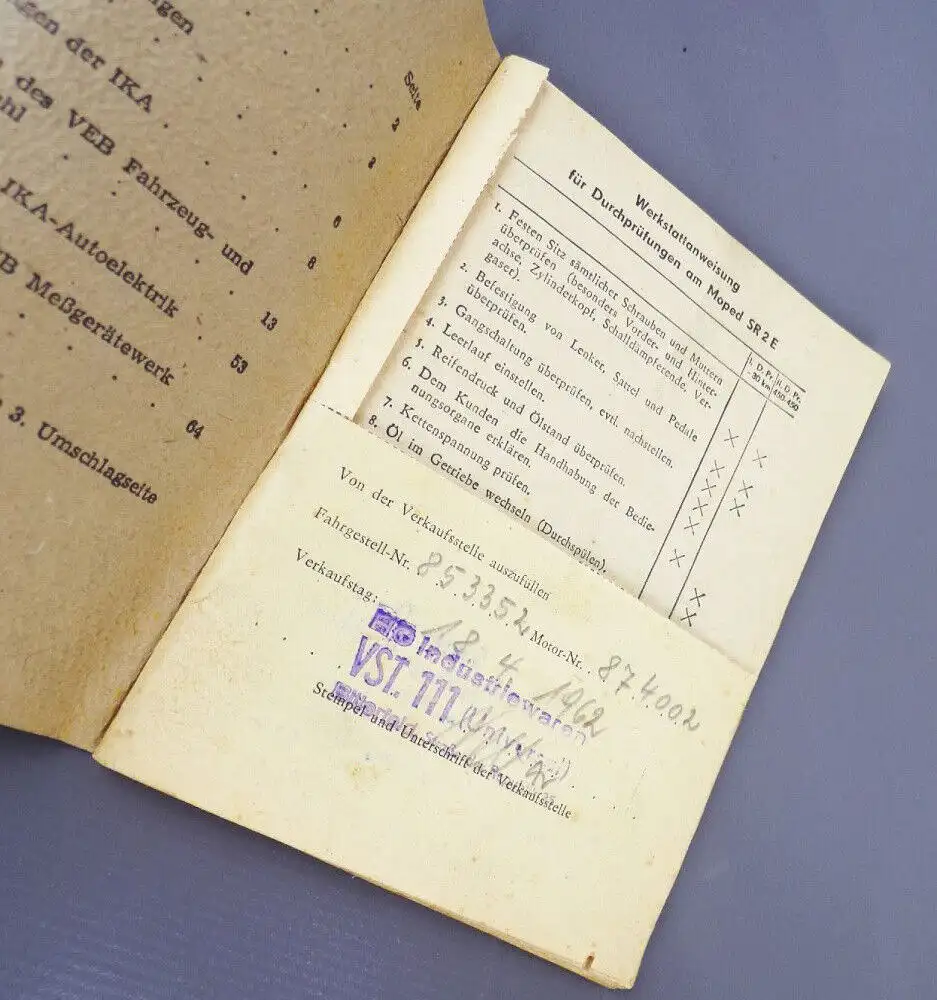 ungen
gen der IKA . 2
des VEB Fahrzeug- und
IKA-Autoelektrik .
B Meßgerätewerk
3. Umschlagseite
Seite
2
6
8
13
53
64
Werkstattanweisung
für Durchprüfungen am Moped SR 2 E
I. D.Pr. II. D. Pr.
-30 km 450-450
1. Festen Sitz sämtlicher Schrauben und Muttern
überprüfen (besonders Vorder- und Hinter-
achse, Zylinderkopf, Schalldämpferende, Ver-
gaser).
2. Befestigung von Lenker, Sattel und Pedale
überprüfen.
3. Gangschaltung überprüfen, evtl. nachstellen.
4. Leerlauf einstellen.
5. Reifendruck und Ölstand überprüfen.
6. Dem Kunden die Handhabung der Bedie-
nungsorgane erklären.
7. Kettenspannung prüfen.
8. Öl im Getriebe wechseln (Durchspülen).
Von der Verkaufsstelle auszufüllen
Fahrgestell-Nr. 853352 Motor-Nr. 874002
Verkaufstag: 18. 4. 1962
HO Industriewaren
VST. 111
Stempel und Unterschrift der Verkaufsstelle